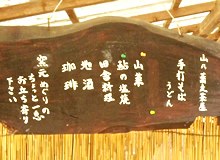 山の蕎麦茶屋
手打そば
うどん
山菜
鮎の塩焼
田舎料理
地酒
珈琲
窯元めぐりの
ちょっと一息
お立ち寄り
下さい